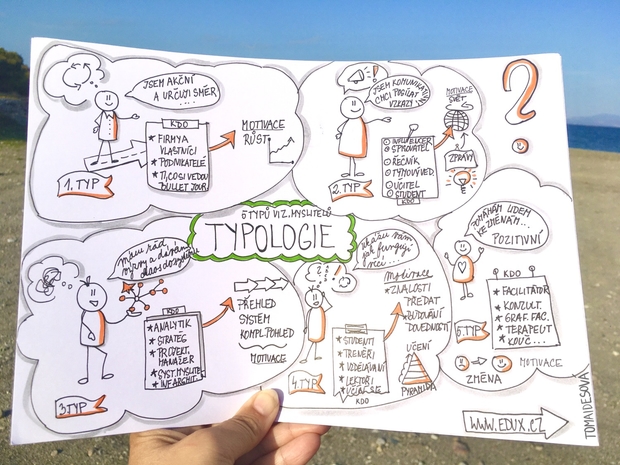 JSEM AKČNÍ
A URČUJI SMĚR
KDO
* FIRMY A
VLASTNÍCI
* PODNIKATELÉ
* TI, CO SI VEDOU
BULLET JOUR
MOTIVACE
RŮST
1. TYP
JSEM KOMUNIKATIVNÍ
CHCI POSÍLAT
VZKAZY
INFLUENCER
SPISOVATEL
ŘEČNÍK
TÝMOVÝ VED.
UČITEL
STUDENT
KDO
MOTIVACE
SVĚT
ZPRÁVY
2. TYP
?
6 TYPŮ VIZ. MYSLITELŮ
TYPOLOGIE
Mám rád
KDO
* ANALYTIK
* STRATÉG
* PROJEKT.
MANAŽER
* SYST. MYSLITEL
* INF. ARCHIT.
PŘEHLED
SYSTÉM
KOMPL. POHLED
MOTIVACE
3. TYP
Ukážu vám
jak fungují
věci...
* STUDENTI
* TRENÉŘI
* VZDĚLAVAT.
* LEKTOŘI
* UČÍM SE
KDO
Motivace
* ZNALOSTI
PŘEDAT
* BUDOVÁNÍ
DOVEDNOSTÍ
UČENÍ
PYRAMIDA
4. TYP
POMÁHÁM LIDEM
KE ZMĚNÁM...
POZITIVNÍ
KDO
* FACILITÁTOR
* KONZULT.
* GRAF. FAC.
* TERAPEUT
* KOUČ...
5. TYP
MOTIVACE
ZMĚNA
WWW.EDUX.CZ
TOMAIDESOVÁ